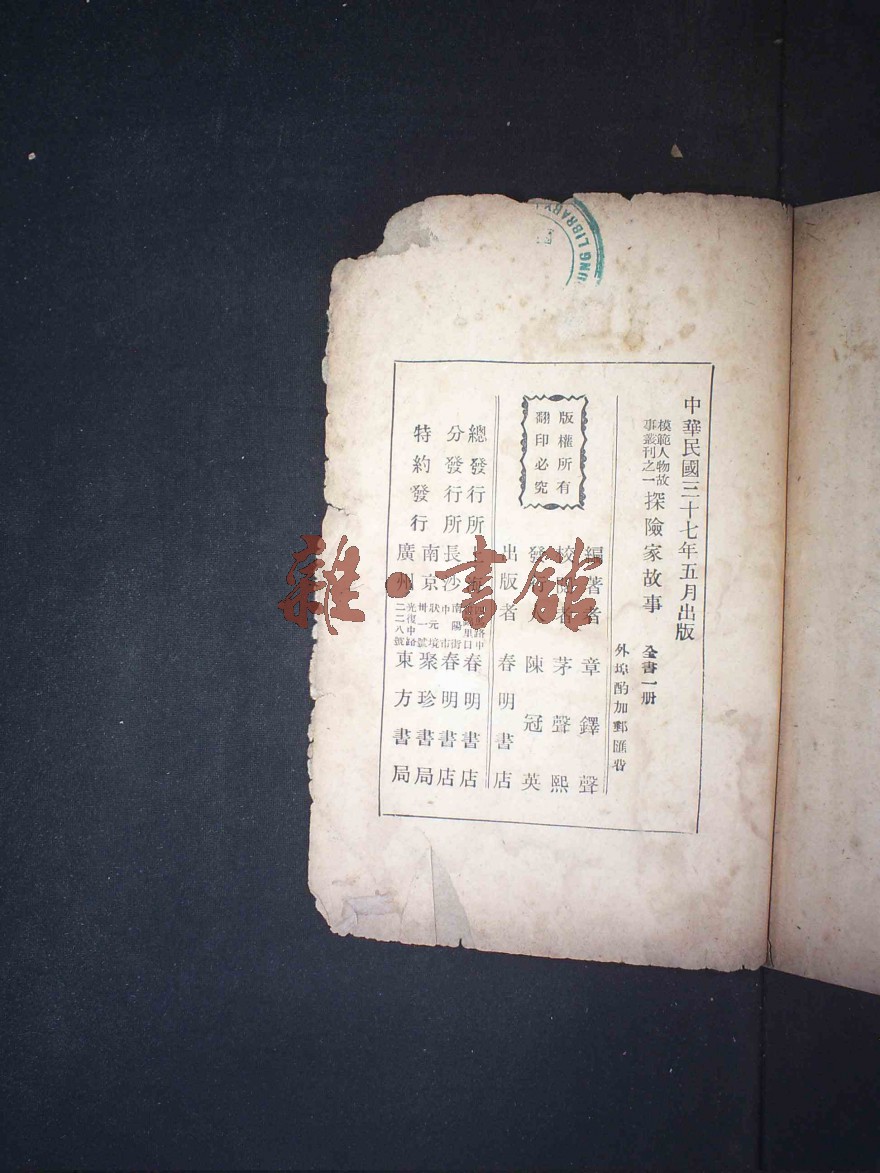 中華民國三十七年五月出版
模範人物故事叢刊之一 探險家故事 全書一册
外埠酌加郵匯費
版權所有
翻印必究
編著者 章鐸聲
校閱者 茅聲熙
發行人 陳冠英
出版者 春明書店
總發行所 上海 春明書店
分發行所 長沙 中南陽街市 春明書店
特約發行
南京 狀元境卅一號 聚珍書局
廣州 光復中路二二八號 東方書局
雜·書館
NG LIBRARY